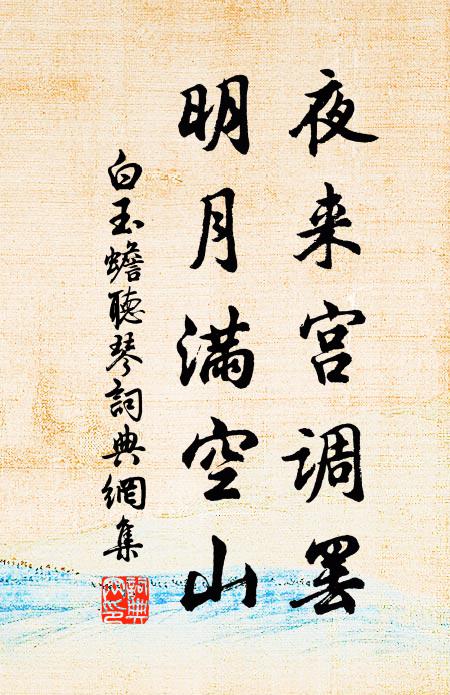 夜来宫调罢
明月满空山
白玉蟾聽琴詞典網集